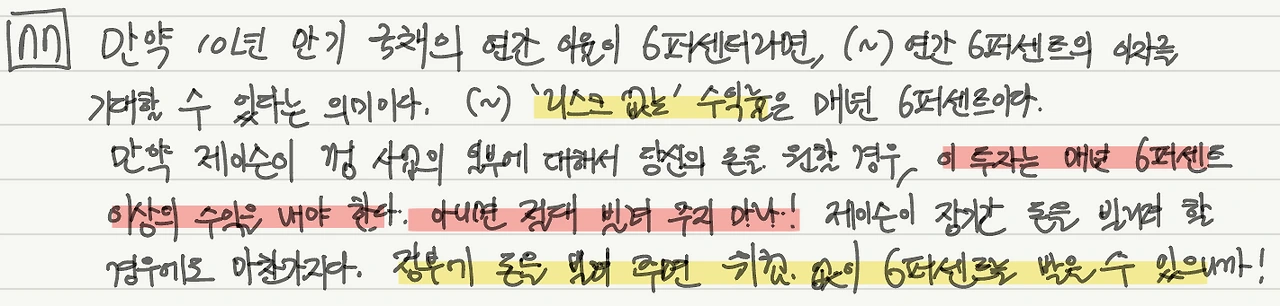 111 만약 10년 만기 국채의 연간 이율이 6퍼센터라면, (~) 연간 6퍼센트의 이자를
기대할 수 있다는 의미이다. (~) '리스크 없는' 수익률은 매년 6퍼센트이다.
만약 제이슨이 껌 사업의 일부에 대해서 당신의 돈을 원할 경우, 이 투자는 매년 6퍼센트
이상의 수익을 내야 한다. 아니면 절대 빌려 주지 마라! 제이슨이 장기간 돈을 빌리려 할
경우에도 마찬가지다. 정부에 돈을 빌려 주면 위험 없이 6퍼센트를 받을 수 있으니까!